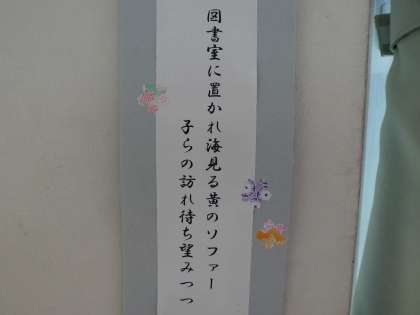 図書室に置かれ海見る黄のソファー
子らの訪れ待ち望みつつ